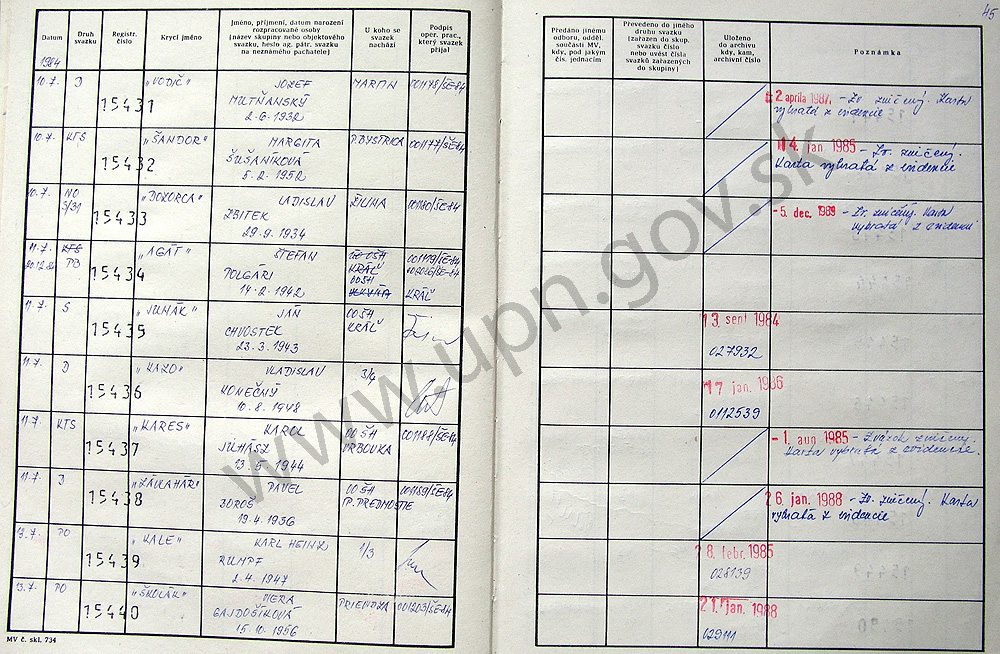 45
Datum
Druh
svazku
Registr.
číslo
Krycí jméno
Jméno, příjmení, datum narození
rozpracované osoby
(název skupiny nebo objektového
svazku, heslo ag. pátr. svazku
na neznámého pachatele)
U koho se
svazek
nachází
Podpis
oper. prac.,
který svazek
přijal
Předáno jinému
odboru, odděl.
součásti MV,
kdy, pod jakým
čís. jednacím
Převedeno do jiného
druhu svazku
(zařazen do skup.
svazku číslo
nebo uvést čísla
svazků zařazených
do skupiny)
Uloženo
do archivu
kdy, kam,
archivní číslo
Poznámka
1984
10.7. D 15431 „VODIČ" JOZEF MARTIN 001178/ŠE-84
MUTŇANSKÝ
2.6.1932
2 apríla 1987 - Zv. zničený. Karta
vybratá z evidencie
10.7. KTS 15432 „ŠANDOR" MARGITA P.BYSTRICA 001177/ŠE-84
ŠUŠANÍKOVÁ
5.2.1952
4. jan 1985 - Zv. zničený.
Karta vybratá z evidencie
10.7. NO 15433 „DOZORCA" LADISLAV ŽILINA 001180/ŠE-84
3/31
ZBITEK
29.9.1934
- 5. dec. 1989 - Zv. zničený. Karta
vybratá z evidencie
11.7. KTS 15434 „AGÁT" ŠTEFAN OŠH 001179/ŠE-84
20.12.84 PB
POLGÁRI KRÁĽ
14.2.1942 OOŠH KRÁĽ
11.7. S 15435 „JUNÁK" JÁN OOŠH
CHVOSTEK KRÁĽ
23.3.1943
13. sept 1984
027932
11.7. D 15436 „KAZO" VLADISLAV 3/4
KONEČNÝ
10.8.1948
17 jan. 1986
0112539
11.7. KTS 15437 „KARES" KAROL OOŠH 001187/ŠE-84
JUHÁSZ VRBOVKA
13.5.1944
- 1. aug 1985 - Zväzok zničený.
Karta vybratá z evidencie.
11.7. D 15438 PAVEL OOŠH 001189/ŠE-84
BOROŠ
19.4.1956
26. jan. 1988 - Zv. zničený. Karta
vybratá z evidencie
13.7. PO 15439 „KALE" KARL HEINZ 1/3
RUMPF
2.4.1947
8. febr. 1985
028139
13.7. PO 15440 „ŠKOLÁK" VIERA PRIEVIDZA 001203/ŠE-84
GAJDOŠÍKOVÁ
15.10.1956
21. jan. 1988
029111
MV č. skl. 734
www.upn.gov.sk